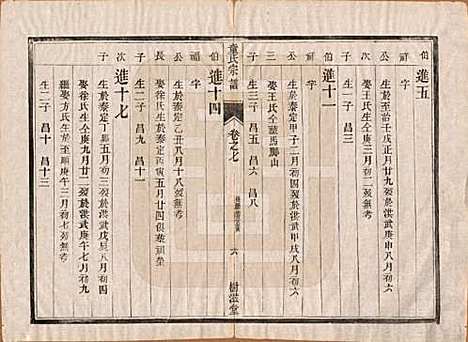 伯 進五
祈 字
公 生於至治壬戌正月廿九歿於洪武庚申八月初六
長 娶徐氏生於 八月初三歿於
子 生一子 昌三
伯 進十一
祈 字
公 生於泰定甲子十二月初四歿於洪武甲戌八月初六
三 娶王氏仝葬馬鞍山
子 生二子 昌五 昌八
童氏宗譜
卷之七
六
樹滋堂
伯 進十四
福 字
公 生於泰定乙丑八月十八歿無考
長 娶徐氏生於泰定丙寅五月廿四
子 生二子 昌九 昌十一
次 進十七
子 生於泰定丁卯五月初三歿於洪武戊辰八月初四
娶徐氏生仝庚九月廿二歿於洪武庚午七月初九
繼娶方氏生於至順庚午三月初七歿無考
生二子 昌十 昌十三